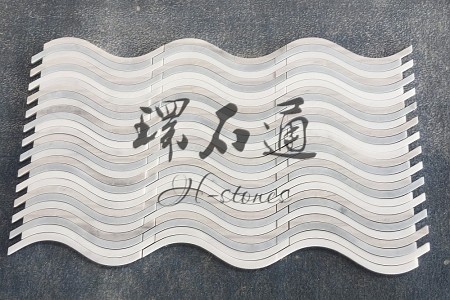 環石通
H-stones